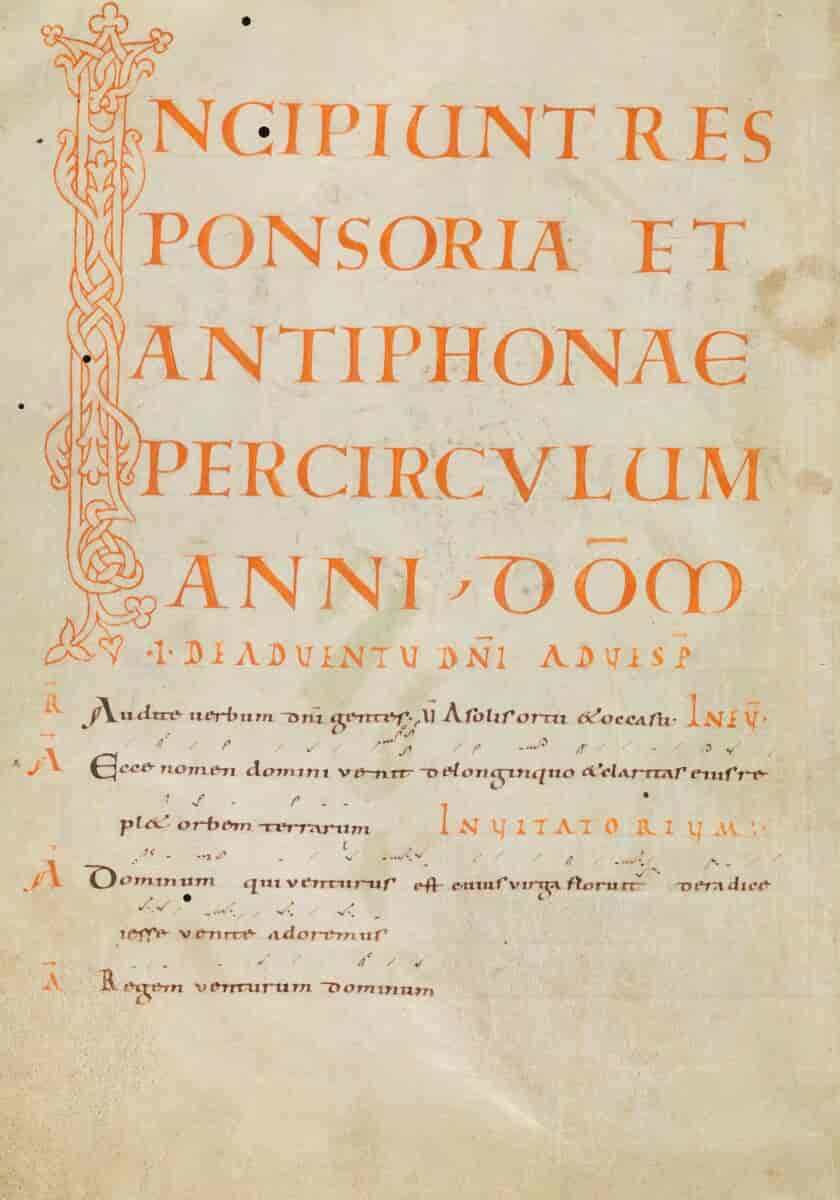 INCIPIUNT RES
PONSORIA ET
ANTIPHONAE
PERCIRCVLUM
ANNI, DŌM
·I· DE ADVENTU DN̄I AD VESP̄
R̄ Audite uerbum dn̄i gentes. ṽ A solis ortu & occasu. IN EṼ.
Ā Ecce nomen domini venit delonginquo & claritas eius re
pl& orbem terrarum INVITATORIVM:
Ā Dominum qui venturus est cuius virga floruit deradice
iesse venite adoremus
Ā Regem venturum dominum